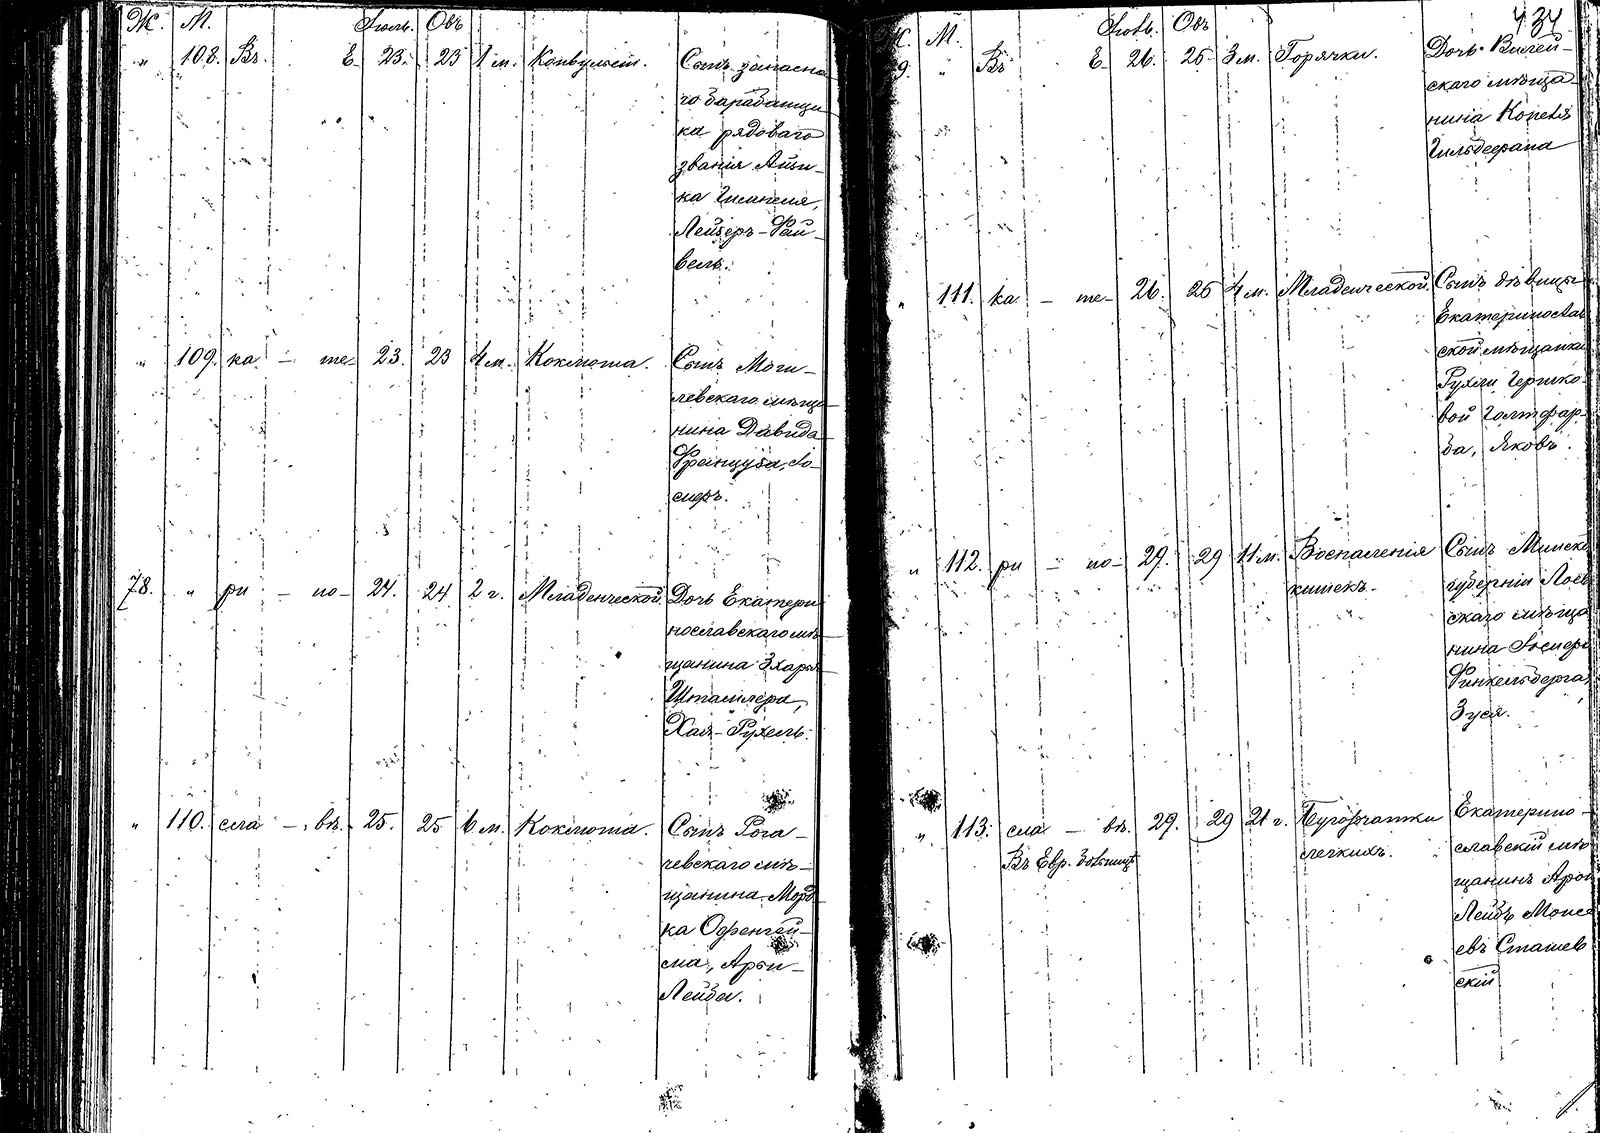 Ж. М. Іюль. Овъ
„ 108. Въ Е- 23. 23 1 м. Конвульсіи. Сынъ запасна-
го барабанщи-
ка рядоваго
званія Айзи-
ка
Лейзеръ-Фай-
вель.
„ 109. ка - те- 23. 23 4 м. Коклюша. Сынъ Моги-
левскаго мѣща-
нина Давида
Француза, Іо-
сифъ.
78. „ ри - но- 24. 24 2 г. Младенческой. Дочь Екатери-
нославскаго мѣ-
щанина
Хая-Рухель.
„ 110. сла - вѣ. 25. 25 6 м. Коклюша. Сынъ Рога-
чевскаго мѣ-
щанина Морд-
ка Офенгей-
ма, Арон-
Лейба.
Ж. М. Іюль. Овъ 434
9. „ Въ Е- 26. 25 3 м. Горячки. Дочь Вилей-
скаго мѣща-
нина
„ 111. ка - те- 26. 25 4 м. Младенческой. Сынъ дѣвицы
Екатеринослав
ской мѣщанки
Рухли Гершко-
вой Голтфар-
ба, Яковъ.
„ 112. ри - но- 29. 29 11 м. Воспаленія Сынъ Минско
кишекъ. губерніи Лоев
скаго мѣща
нина Іосифа
Финкельберга,
Зуся.
„ 113. сла - вѣ. 29. 29 21 г. Бугорчатки Екатерино-
Въ Евр. больницѣ легкихъ. славскій мѣ
щанинъ Арон
Лейбъ Моисе
евъ Сташев
скій